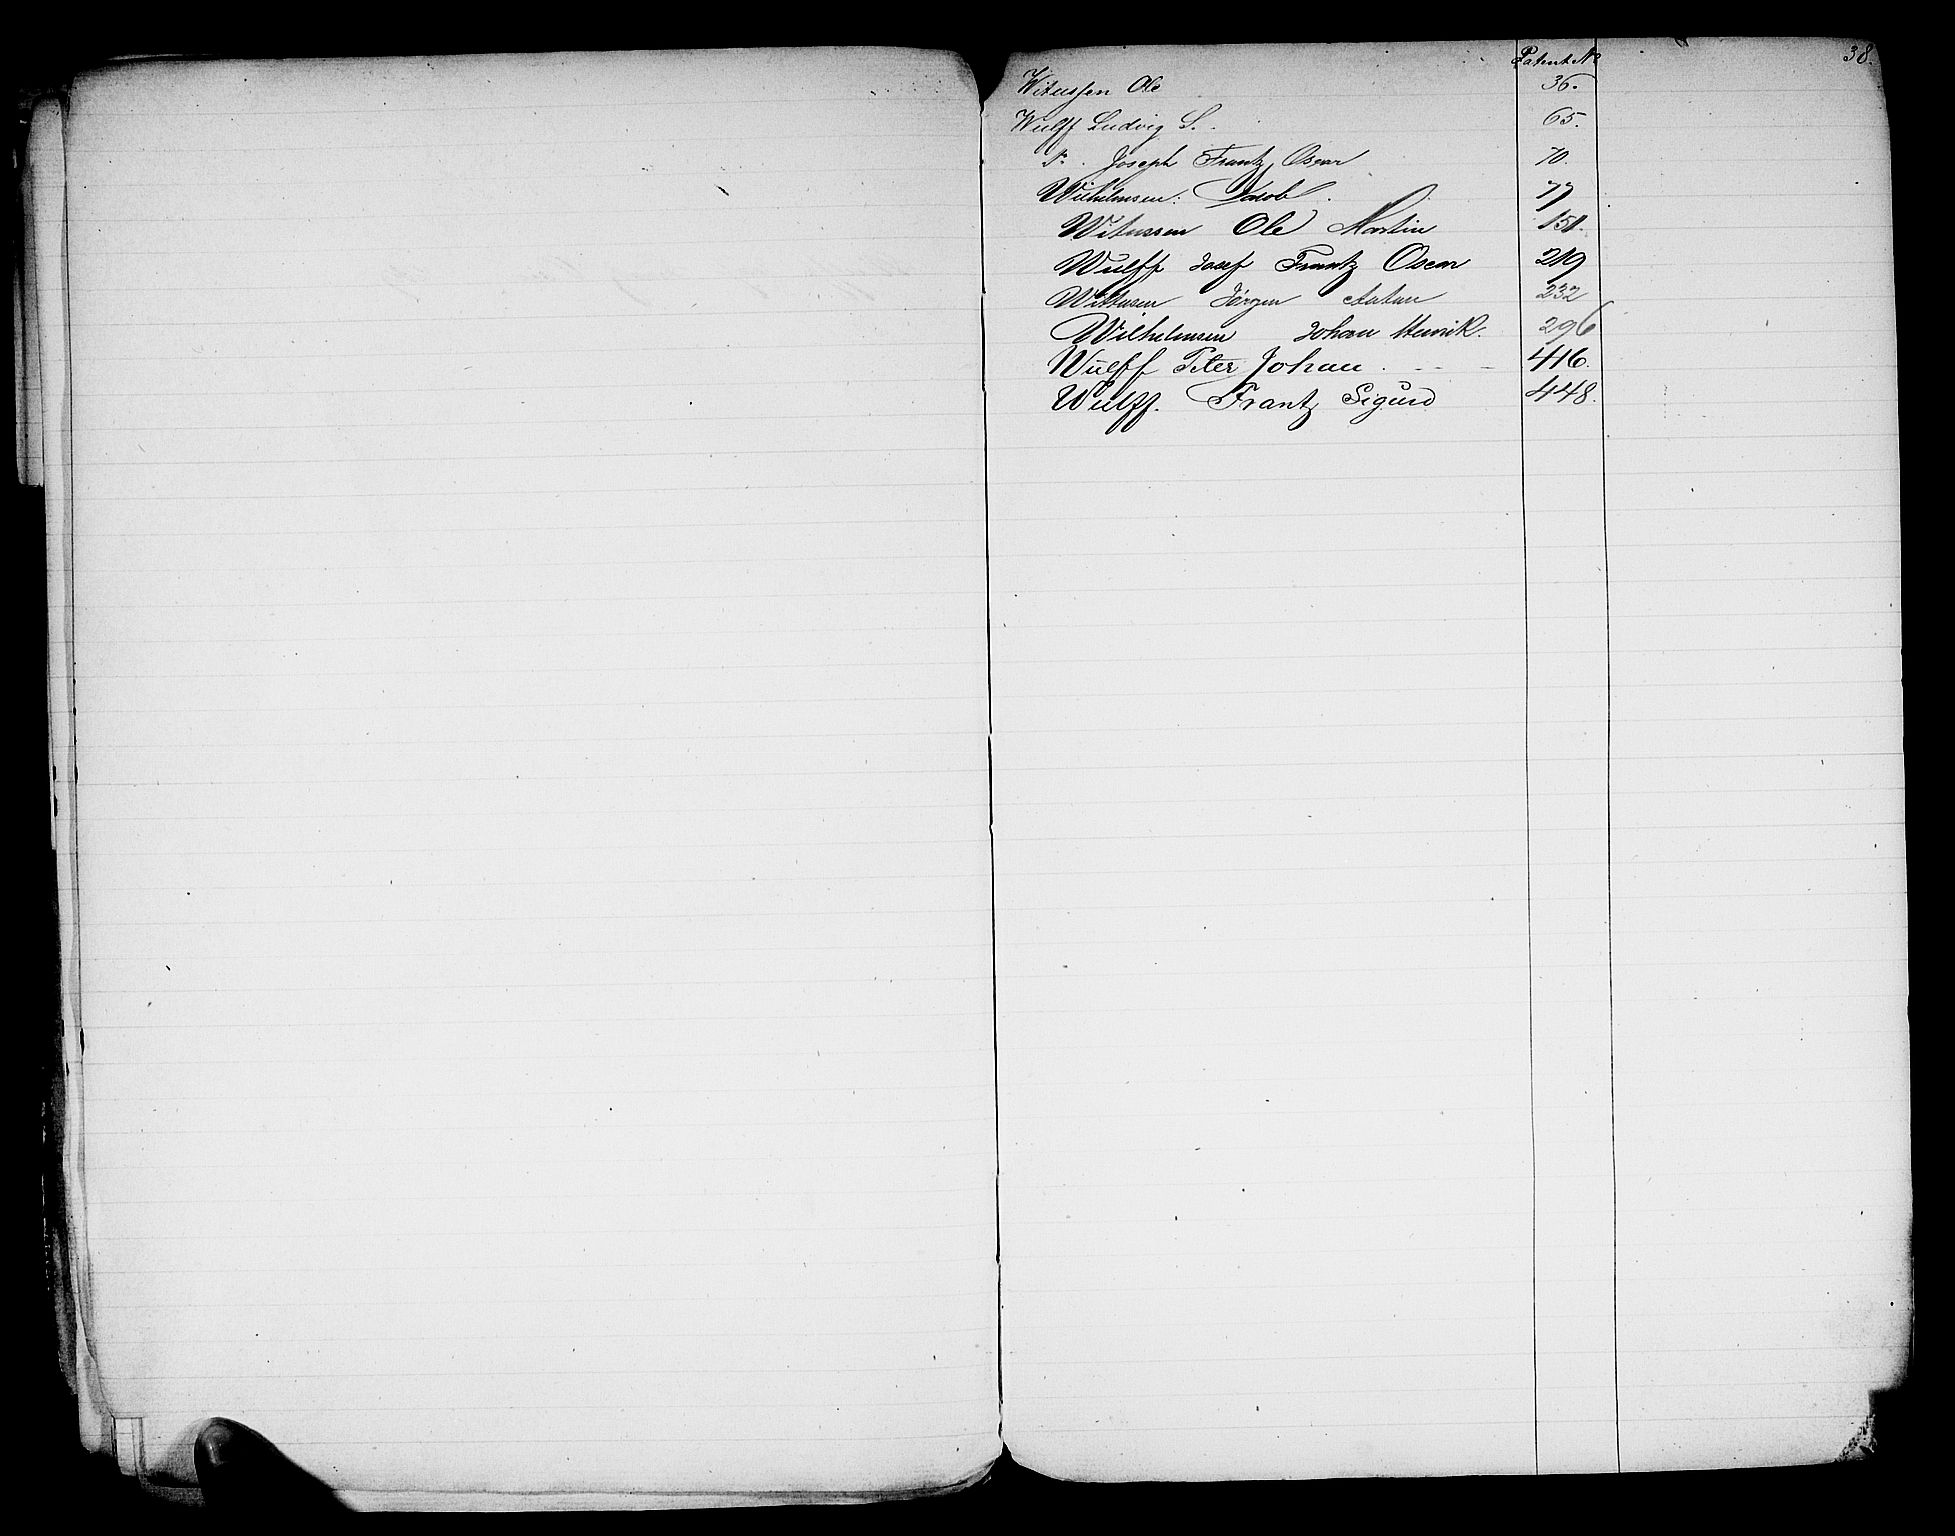 Patent No
38.
Witussen Ole 36.
Wulff Ludvig S. 65.
Do. Joseph Frantz Oscar 70.
Wilhelmsen: Jacob. 77
Witussen Ole Martin 151.
Wulff Josef Frantz Oscar 219
Wittusen Jørgen Anton 232
Wilhelmsen Johan Henrik. 296
Wulff Peter Johan. - - - 416.
Wulff. Frantz Sigurd 448.